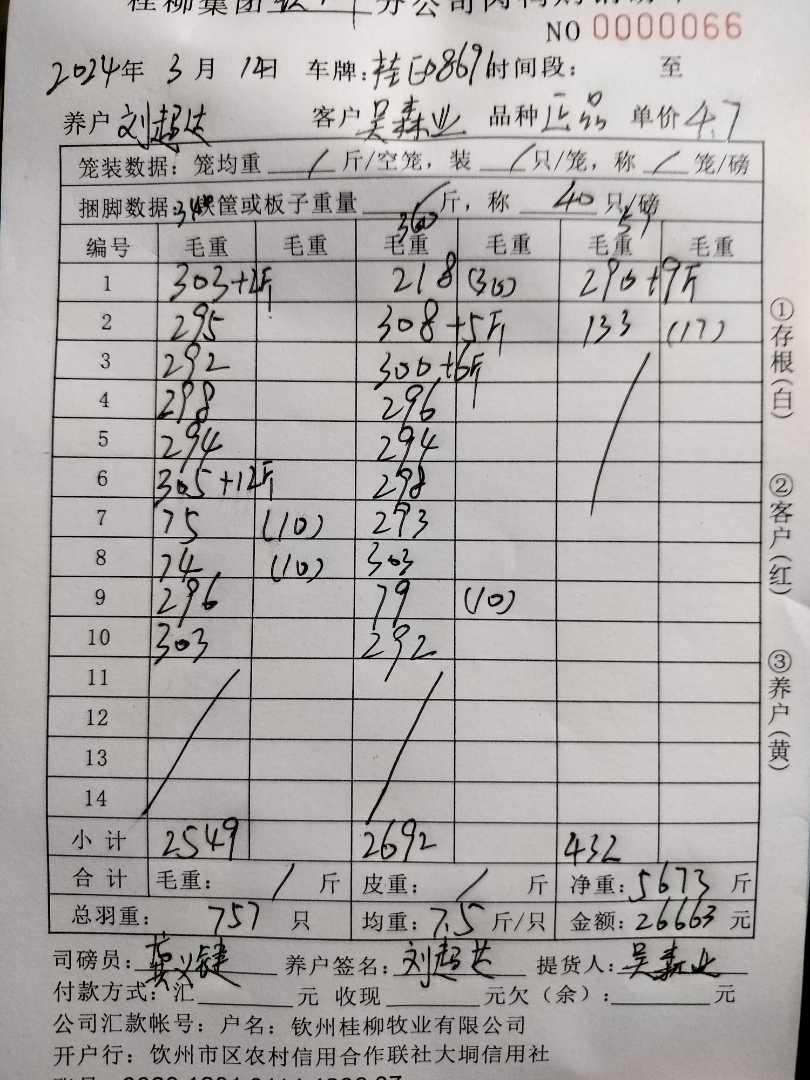 桂柳集团
分公司肉鸭购销
NO 0000066
2024年 3月 日 车牌:桂ED869 时间段: 至
养户 刘超达 客户 吴森业 品种 正品 单价 4.7
笼装数据:笼均重 / 斤/空笼,装 / 只/笼,称 / 笼/磅
捆脚数据: 铁筐或板子重量 / 斤,称 40 只/磅
340 360 57
编号 毛重 毛重 毛重 毛重 毛重 毛重
1 303+2斤 218 (30) 290+9斤
2 295 308+5斤 133 (17)
3 292 300+6斤
4 298 296
5 294 294
6 305+12斤 298
7 75 (10) 293
8 74 (10) 303
9 296 79 (10)
10 303 292
11
12
13
14
小计 2549 2692 432
合计 毛重: / 斤 皮重: / 斤 净重:5673 斤
总羽重: 757 只 均重:7.5 斤/只 金额:26663 元
司磅员:龚义键 养户签名:刘超达 提货人:吴森业
付款方式:汇 元 收现 元欠(余): 元
公司汇款帐号:户名:钦州桂柳牧业有限公司
开户行:饮州市区农村信用合作联社大垌信用社
①存根(白) ②客户(红) ③养户(黄)